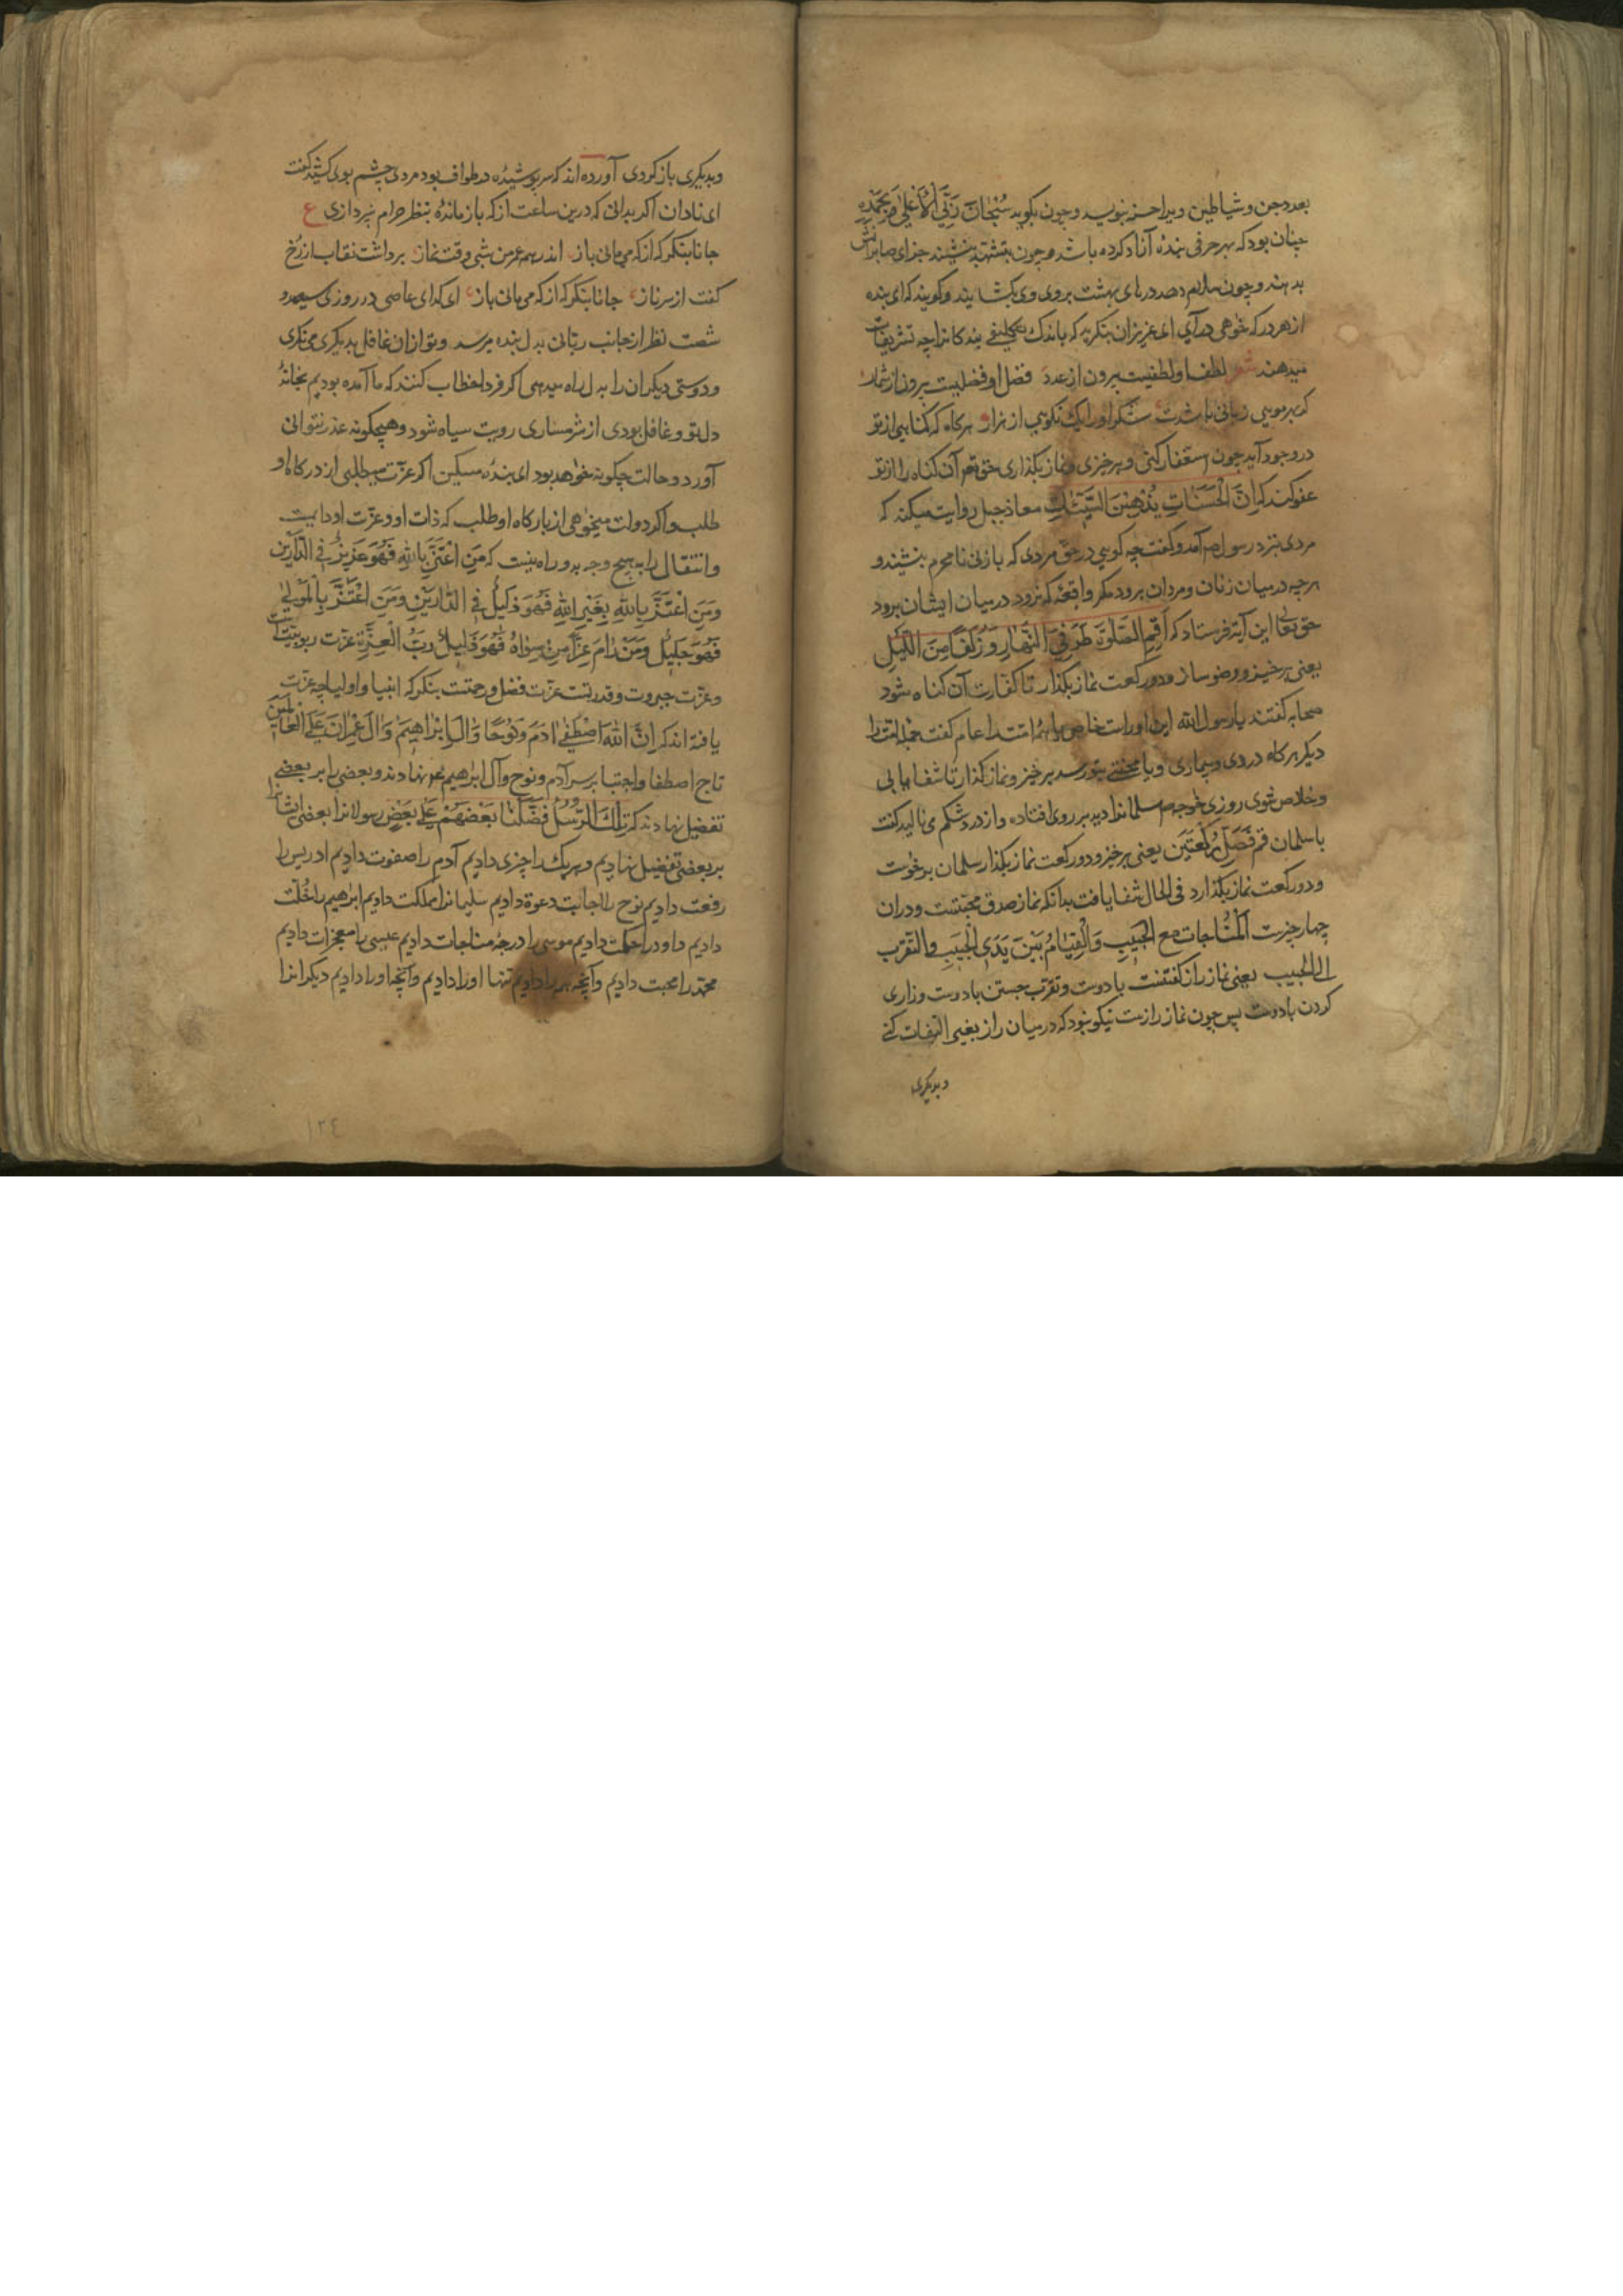 بعدد جن و شیاطین ویرا حسنه بنویسد و چون بگوید سُبْحَانَ رَبِّیَ الْاَعْلیٰ وَ بِحَمْدِه
چنان بود که بهر حرفی بنده آزاد کرده باشد و چون بتشهد بنشیند جزای صابرانش
بدهند و چون سلام دهد درهای بهشت بروی وی بگشایند و گویند که ای بنده
از هر در که خوهی درآی ای عزیزان بنگرید که باندک تکلیفی بندکانرا چه تشریفات
میدهند شعر لطف او لطفیست بیرون از عدد فضل او فضلیست بیرون از شمار
کر بهر مویی زبانی باشدت شکر او را یک نکویی از هزار هرکاه که کناهی از تو
در وجود آید چون استغفار کنی و برخیزی و نماز بکذاری حق تع آن کناه را از تو
عفو کند که اِنَّ الْحَسَنَاتِ یُذْهِبْنَ السَّیِّئَاتِ معاذ جبل روایت میکند که
مردی نزد رسول ص آمد و کفت چه کویی در حق مردی که با زنی نامحرم بنشیند و
هرچه در میان زنان و مردان برود مکر واقعه که نرود در میان ایشان برود
حق تعالی این آیة فرستاد که اَقِمِ الصَّلوٰةَ طَرَفَیِ النَّهَارِ وَ زُلَفًا مِنَ اللَّیْلِ
یعنی برخیز و وضو ساز و دو رکعت نماز بکذار تا کفارت آن کناه شود
صحابه کفتند یا رسول الله این او راست خاص یا همه امتت را عام کفت همه امت را
دیکر هرکاه دردی و بیماری و یا محنتی بتو رسد برخیز و نماز کذار تا شفا یابی
و خلاص شوی روزی خوجه ص سلمانرا دید بر روی افتاده و از درد شکم می نالید کفت
یا سلمان قم فَصَلِّ رَکْعَتَیْن یعنی برخیز و دو رکعت نماز بکذار سلمان برخوست
و دو رکعت نماز بکذارد فی الحال شفا یافت بدانکه نماز صدق محبتست و در آن
چهار چیزست اَلْمُنَاجَات مع الْحَبِیبِ وَالْقِیَامُ بَیْنَ یَدَیِ الْحَبِیبِ والتقرّب
الی الحبیب یعنی نماز راز کفتنست با دوست و تقرب جستن با دوست و زاری
کردن با دوست پس چون نماز رازست نیکو نبود که در میان راز بغیر التفات کنی
و بدیکری
و بدیکری باز کردی آورده اند که سرپوشیده در طواف بود مردی چشم بوی کشید کفت
ای نادان اکر بدانی که درین ساعت از که باز مانده بنظر حرام نپردازی ع
جانا بنکر که از که می مانی باز اندر همه عمر من شبی وقت نماز برداشت نقاب از رخ
کفت از سر ناز جانا بنکر که از که می مانی باز ای کدای عاصی در روزی سیصد و
شصت نظر از جانب ربانی بدل بنده میرسد و تو از ان غافل بدیکری می نکری
و دوستی دیکران را بدل راه میدهی اکر فردا خطاب کنند که ما آمده بودیم بخانهٔ
دل تو و غافل بودی از شرمساری رویت سیاه شود و هیچکونه عذر نتوانی
آورد و حالت چکونه خوهد بود ای بندهٔ مسکین اکر عزت میطلبی از درکاه او
طلب و اکر دولت میخوهی از بارکاه او طلب که ذات او و عزت او دایمست
و انتقال را بهیچ وجه بدو راه نیست که مَنِ اعْتَزَّ بِاللّٰهِ فَهُوَ عَزِیزٌ فِی الدَّارَیْن
وَمَنِ اعْتَزَّ بِاللّٰهِ بِغَیْرِ اللّٰهِ فَهُوَ ذَلِیلٌ فِی الدَّارَیْنِ وَمَنِ اعْتَزَّ بِالْمَوْلیٰ
فَهُوَ جَلِیلٌ وَمَنْ رَامَ عِزًّا مِنْ سِوَاهُ فَهُوَ ذَلِیلٌ رَبُّ الْعِزَّةِ عزت ربوبیتست
و عزت جبروت و قدرتست عزت فضل و رحمتست بنکر که انبیا و اولیا چه عزت
یافته اند که اِنَّ اللّٰهَ اصْطَفیٰ اٰدَمَ وَنُوحًا وَاٰلَ اِبْرَاهِیمَ وَاٰلَ عِمْرَانَ عَلَی الْعَالَمِینَ
تاج اصطفا و اجتبا بر سر آدم و نوح و آل ابرهیم نهادند و بعضی را بر بعضی
تفضیل نهادند که تِلْكَ الرُّسُلُ فَضَّلْنَا بَعْضَهُمْ عَلیٰ بَعْضٍ رسولانرا بعضی ایشانرا
بر بعضی تفضیل نهادیم و هر یک را چیزی دادیم آدم را صفوت دادیم ادریس را
رفعت دادیم نوح را اجابت دعوة دادیم سلیمانرا مملکت دادیم ابرهیم را خُلّت
دادیم داود را حکمت دادیم موسی را درجهٔ مناجات دادیم عیسی را معجزات دادیم
محمّد را محبت دادیم و آنچه همه را دادیم تنها او را دادیم و آنچه او را دادیم دیکرانرا
۱۲٤